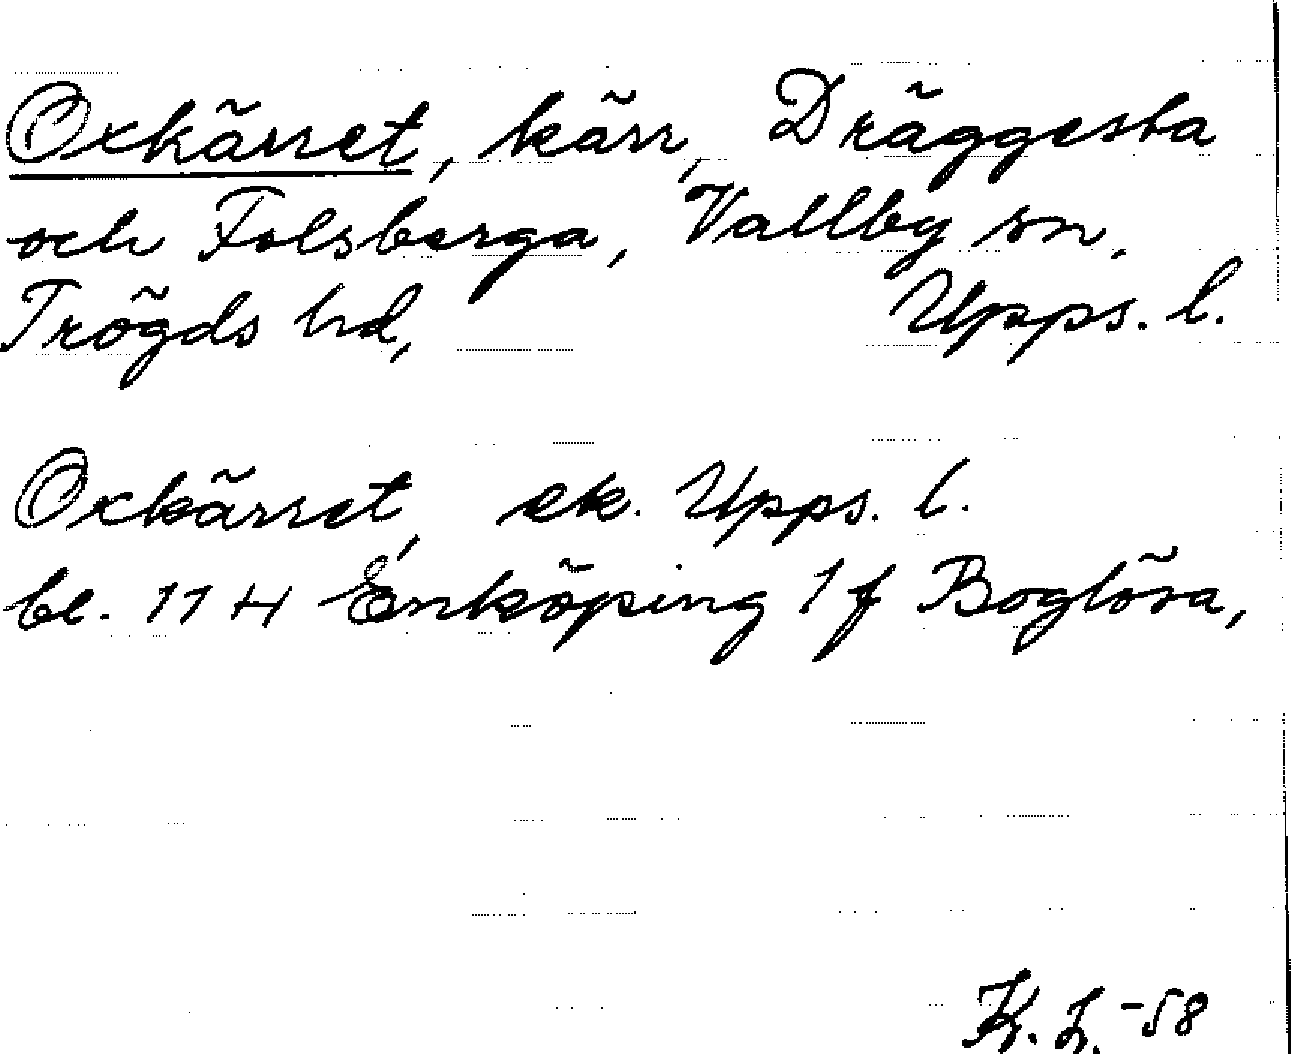 Oxkärret, kärr, Dräggesta
och Folsberga, Vallby sn,
Trögds hd, Upps. l.
Oxkärret, ek. Upps. l.
bl. 114 Enköping 1f Boglösa,
K. L. -58